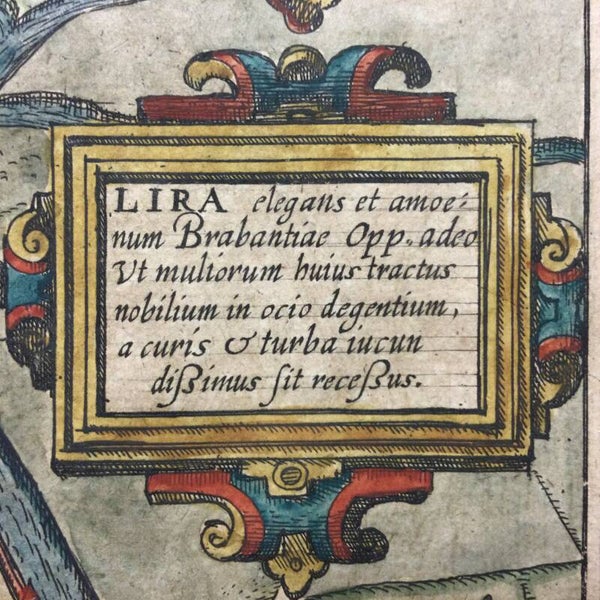 LIRA elegans et amoe:
num Brabantiae Opp. adeo
Vt muliorum huius tractus
nobilium in ocio degentium,
a curis & turba iucun
dißimus ſit receßus.